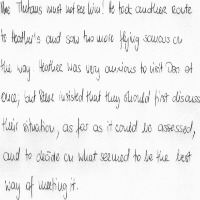 The Thetans must not see him. He took another route
to Heather's and saw two more flying saucers on
the way. Heather was very anxious to visit Dan at
once, but Steve insisted that they should first discuss
their situation, as far as it could be assessed,
and to decide on what seemed to be the best
way of meeting it.